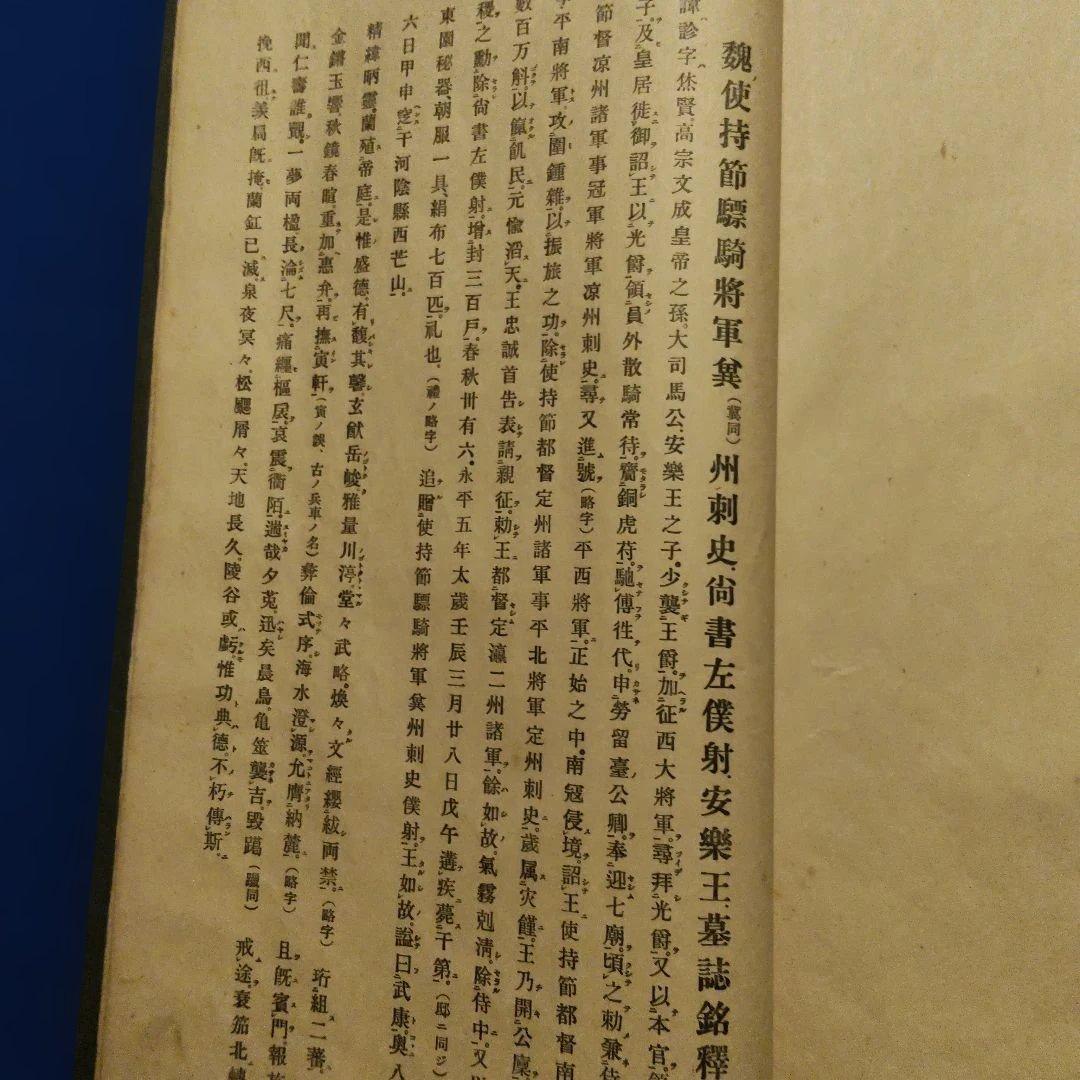 魏使持節驃騎將軍兾（冀同）州刺史、尙書左僕射、安樂王、墓誌銘釋
諱診字烋賢。高宗文成皇帝之孫。大司馬公、安樂王之子。少襲王爵。加征西大將軍。尋拜光爵。又以本官
子。及皇居徙御。詔王以光爵領員外散騎常待。賫銅虎苻。馳傳徃代。申勞留臺公卿。奉迎七廟。頃之勅兼侍
節督凉州諸軍事冠軍將軍凉州刺史。尋又進號（略字）平西將軍。正始之中。南冦侵境。詔王使持節都督南
平南將軍。攻圍鍾離。以振旅之功。除使持節都督定州諸軍事平北將軍定州刺史。歲属灾饉。王乃開公廩
數百万斛。以餼飢民。元愉滔天。王忠誠首告表請親征。勅王都督定瀛二州諸軍。餘如故。氣霧剋淸。除侍中。又以
稷之勳。除尙書左僕射。增封三百戶。春秋卅有六。永平五年太歲壬辰三月廿八日戊午遘疾薨于第。（邸ニ同ジ）
東園秘器、朝服一具、絹布七百匹。礼也。（禮ノ略字）追贈使持節驃騎將軍兾州刺史僕射。王如故。謚曰武康。奥八
六日甲申窆于河陰縣西芒山。
精緯昞靈。蘭殖帝庭。是惟盛德。有馥其馨。玄猷岳峻。雅量川渟。堂々武略。煥々文經。纓紱両禁。（略字）珩組二蕃。
金鏘玉響。秋鏡春暄。重加惠弁。再撫寅軒。（寅ノ誤、古ノ兵車ノ名）彜倫式序。海水澄源。允膺納麓。（略字）且旣賓門。報
聞仁壽誰觀。一夢両楹。長淪七尺。痛纒樞扆。哀震衢陌。遄哉夕兎。迅矣晨鳥。亀筮襲吉。毀躅（躑同）戒途。衰笳北
挽西祖。羨扃旣掩。蘭釭已滅。泉夜冥々。松颸屑々。天地長久。陵谷或虧。惟功典德。不朽傳斯。